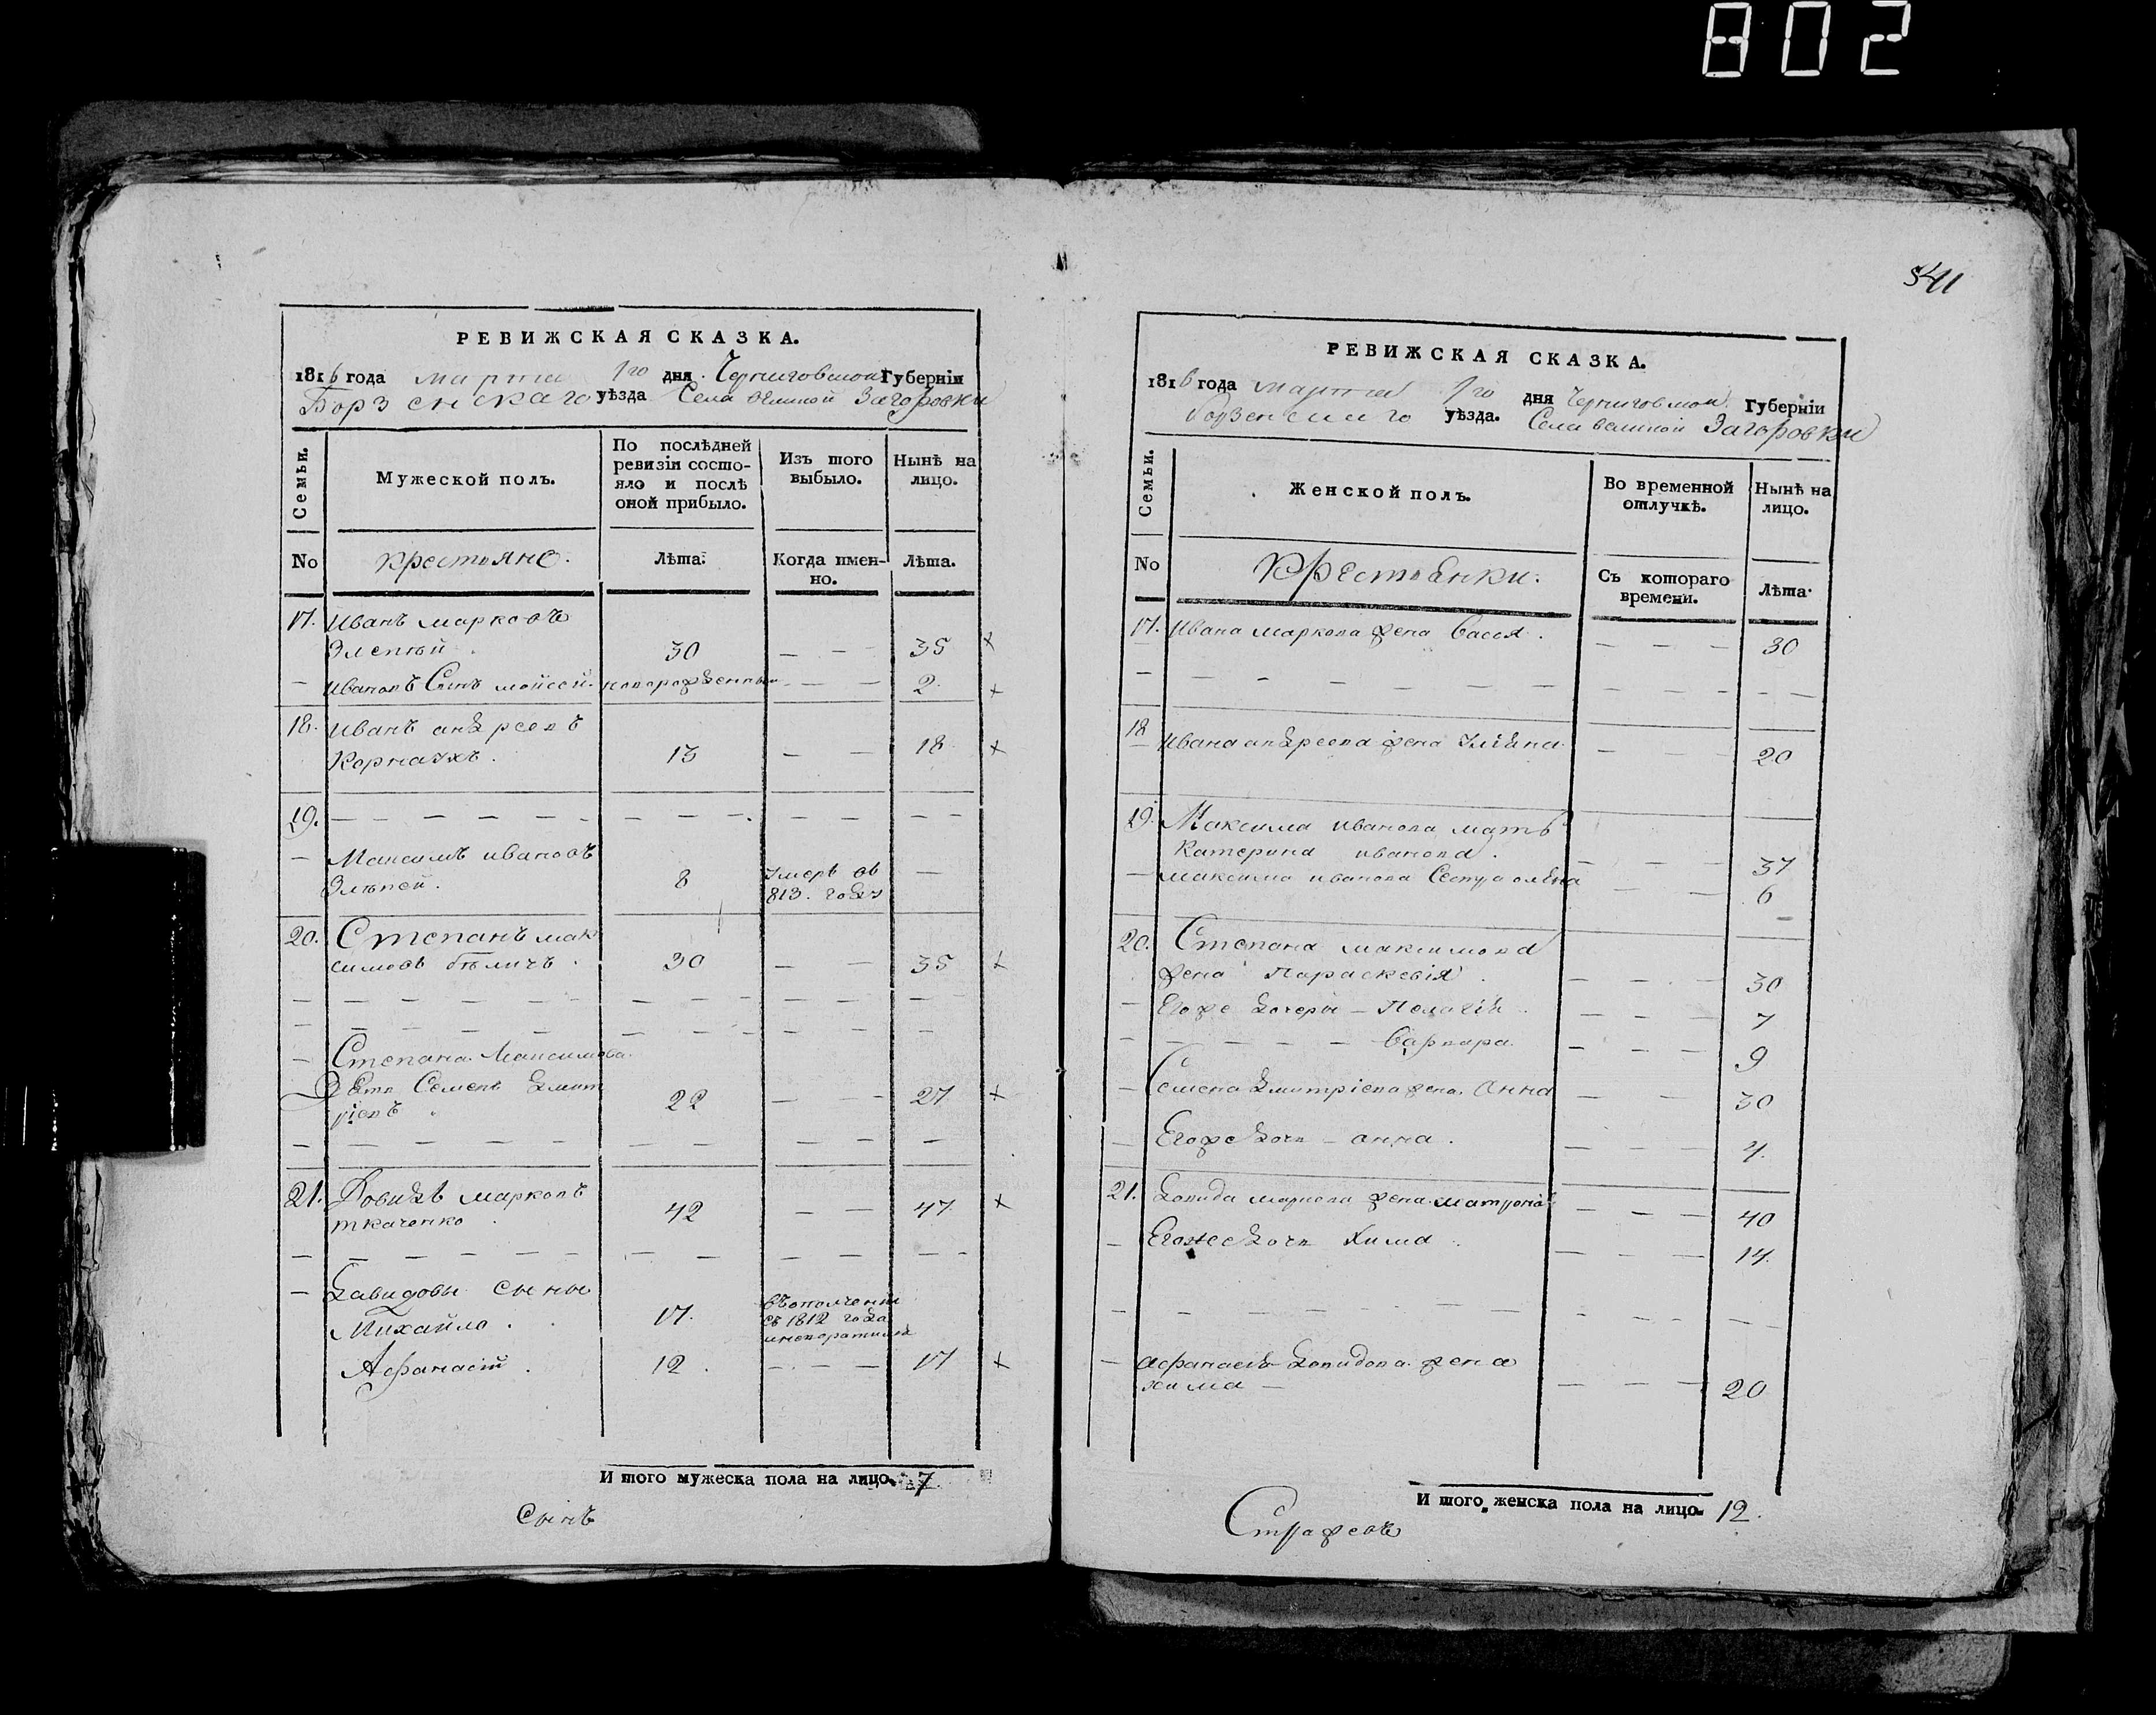 802
541
РЕВИЖСКАЯ СКАЗКА.
1816 года марта 1го дня Черниговской Губерніи
Борзенскаго уѣзда Села великой Загоровки
Семьи.
Мужеской полъ.
По послѣдней ревизіи состояло и послѣ оной прибыло.
Изъ того выбыло.
Нынѣ на лицо.
No
крестьяне.
Лѣта.
Когда имен-
но.
Лѣта.
17. Иванъ марковъ
30 — — — 35 ×
— ивановъ Синъ мойсей новорожденный — — 2 ×
18. Иванъ андреевъ
13 — — 18 ×
19. — — — — — —
— Максимъ ивановъ
8 умеръ въ —
813. году
20. Степанъ мак
симовъ бѣличъ. 30 — — 35 ×
— Степана Максимова
Дѣти Семенъ Дмит
ріевъ 22 — — — 27 ×
21. Довидъ марковъ
ткаченко 42 — — 47 ×
— Давидовы сыны
Михайло. 17. въополченіи
съ 1812 года
Афанасій. 12. — — — 17 ×
И того мужеска пола на лицо. 7
сынъ
РЕВИЖСКАЯ СКАЗКА.
1816 года марта 1го дня Черниговской Губерніи
борзенскаго уѣзда. Села великой Загоровки
Семьи.
Женской полъ.
Во временной
отлучкѣ.
Нынѣ на
лицо.
No
Крестьянки.
Съ котораго
времени.
Лѣта.
17. Ивана маркова жена Васса. — — — 30
18 Ивана андреева жена — — — 20
19. Максима иванова мать
Катерина иванова. — — — 37
— максима иванова Сестра олена — — 6
20. Степана максимова
жена Параскевія. — — — 30
— Егоже дочери — Пелагія — — — 7
— — — — — Варвара. — — — 9
— Семена Дмитріева жена Анна — — 30
— Егоже дочь — анна. — — 4.
21. Довида маркова жена матрона — — — 40
— Егоже дочь Хима. — — — 14.
— афанасія Довидова жена
хима — — — — 20
И того женска пола на лицо. 12.